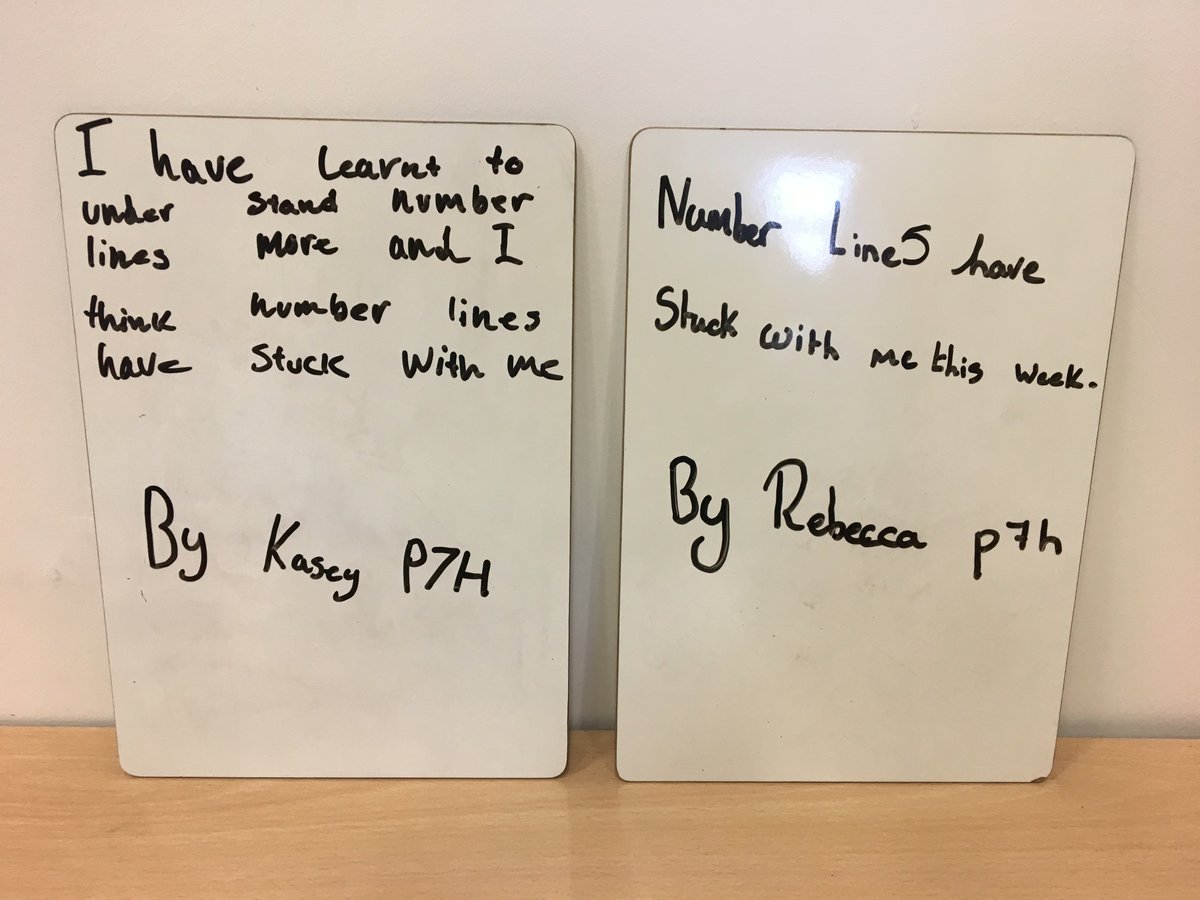 I have Learnt to
under stand number
lines more and I
think number lines
have Stuck With me
By Kasey P7H
Number LineS have
Stuck with me this week.
By Rebecca p7h